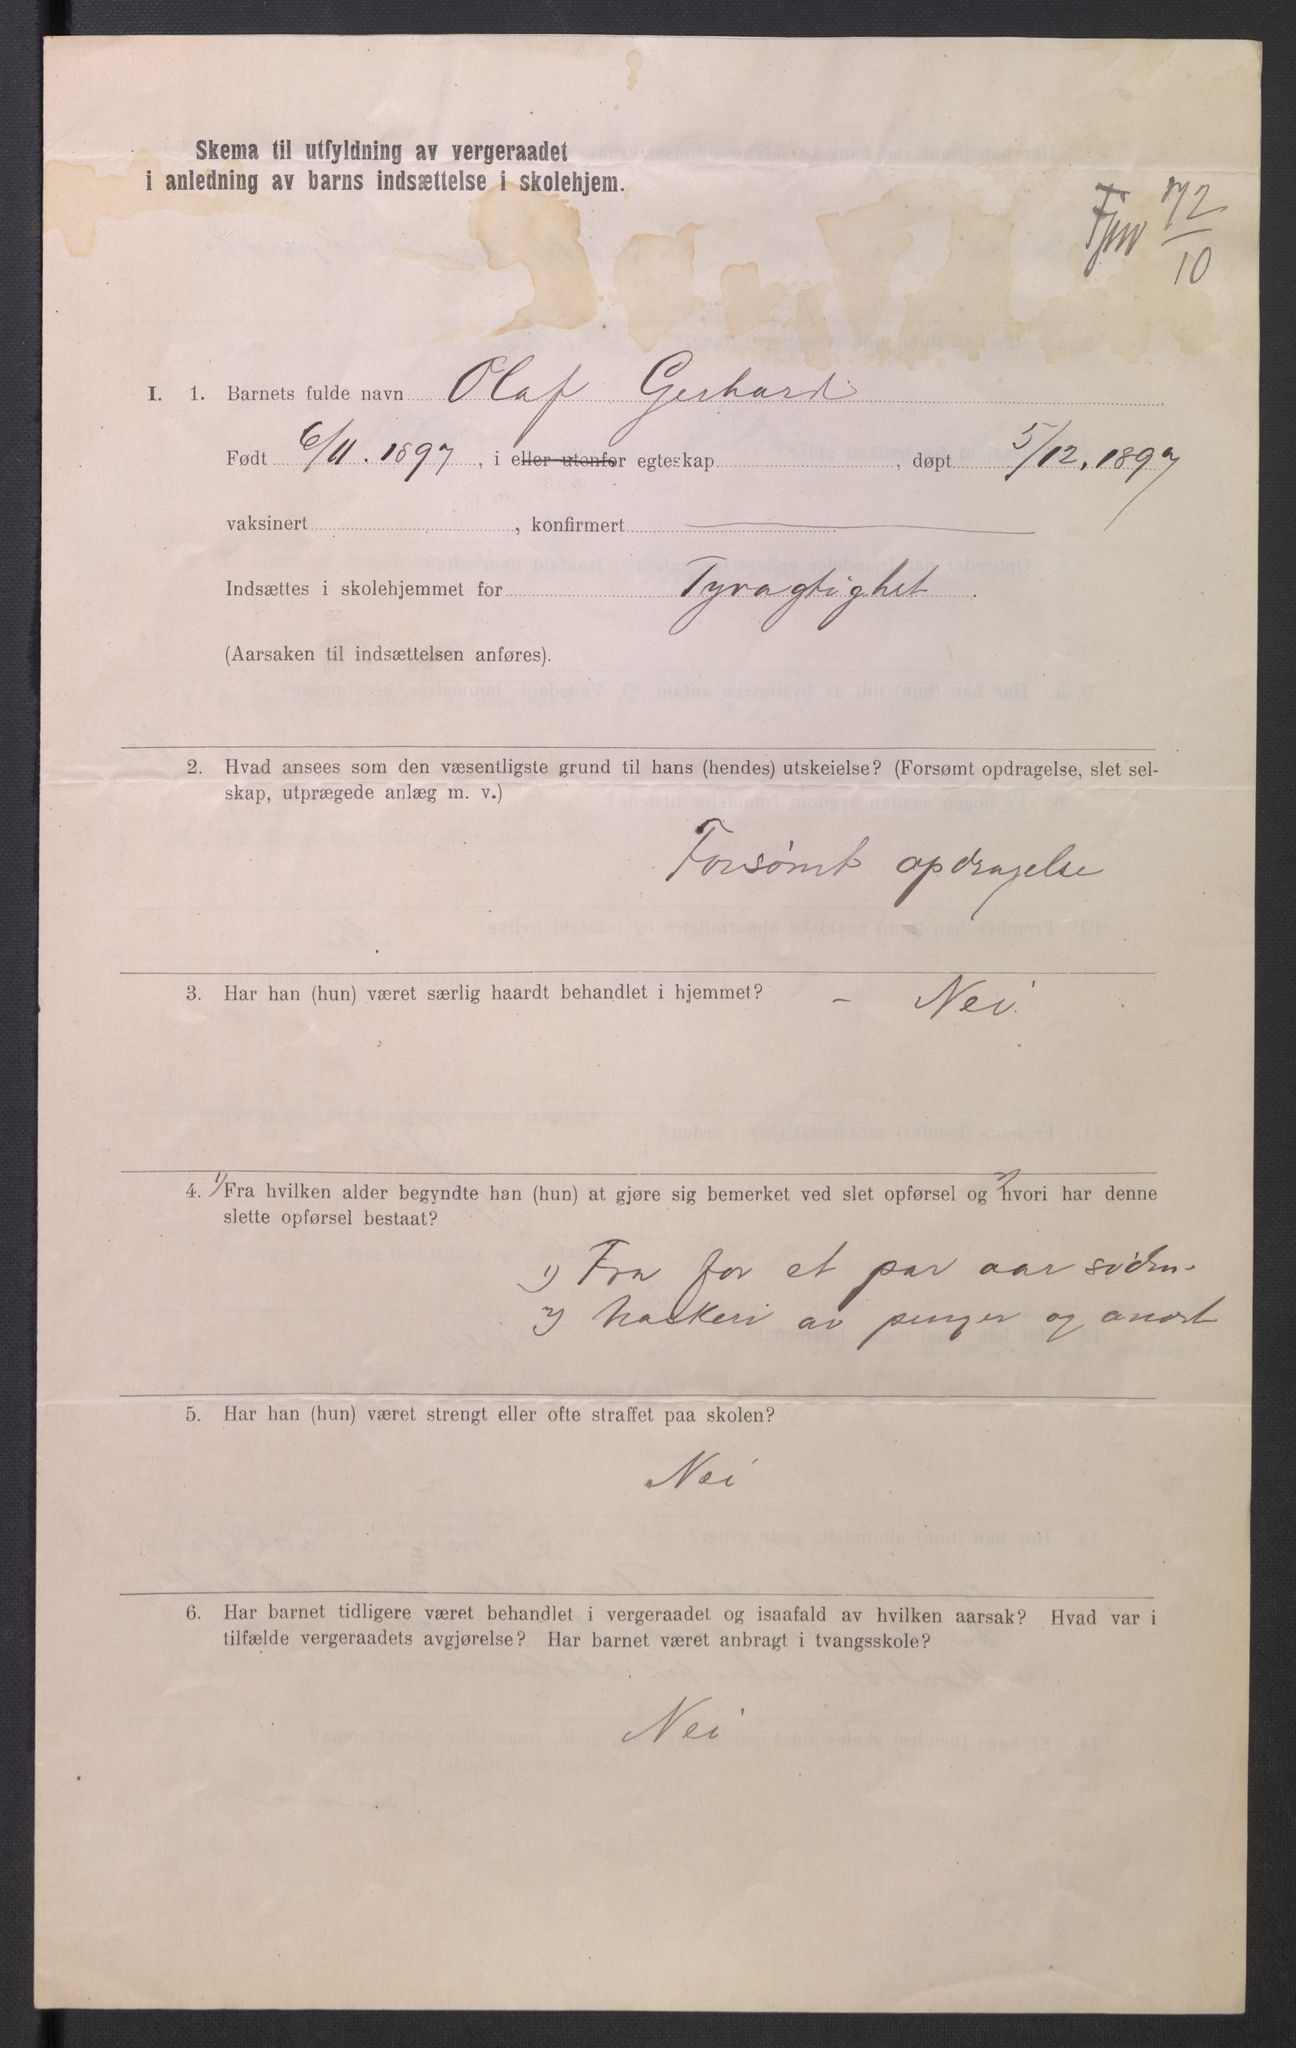 Skema til utfyldning av vergeraadet
i anledning av barns indsættelse i skolehjem.
72
10
I. 1. Barnets fulde navn Olaf Gerhard
Født 6/11. 1897, i eller utenfor egteskap , døpt 5/12. 1897
vaksinert , konfirmert
Indsættes i skolehjemmet for Tyvagtighet.
(Aarsaken til indsættelsen anføres).
2. Hvad ansees som den væsentligste grund til hans (hendes) utskeielse? (Forsømt opdragelse, slet sel-
skap, utprægede anlæg m. v.)
Forsømt opdragelse
3. Har han (hun) været særlig haardt behandlet i hjemmet? - Nei.
4. 1) Fra hvilken alder begyndte han (hun) at gjøre sig bemerket ved slet opførsel og 2) hvori har denne
slette opførsel bestaat?
1) Fra for et par aar siden.
2) Naskeri av penger og andet
5. Har han (hun) været strengt eller ofte straffet paa skolen?
Nei
6. Har barnet tidligere været behandlet i vergeraadet og isaafald av hvilken aarsak? Hvad var i
tilfælde vergeraadets avgjørelse? Har barnet været anbragt i tvangsskole?
Nei